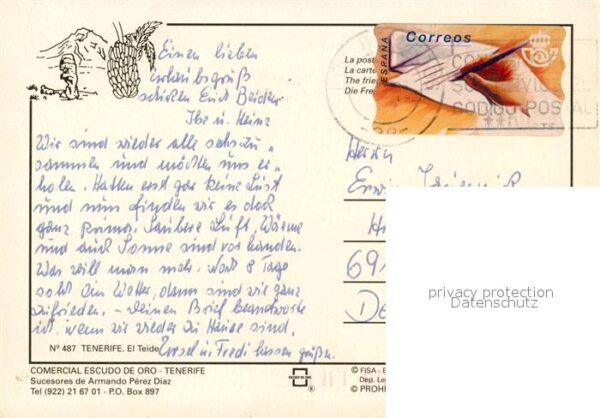 Einen lieben
Urlaubsgruß
schicken Euch Beiden
Ilse u. Heinz
Wir sind wieder alle
sammen und möchten uns er-
holen. Hatten erst gar keine Lust
und nun finden wir es doch
ganz prima. Saubere Luft, Wärme
und auch Sonne sind vorhanden.
Was will man mehr. Noch 8 Tage
so ein Wetter, dann sind wir ganz
zufrieden. – Deinen Brief beantworte
ich, wenn wir wieder zu Hause sind.
Ursel u. Fredi lassen grüßen.
Correos
ESPAÑA
La post
La carte
The frien
Die Fre
CODIGO POSTAL
Herrn
Erwin
H
691
De
privacy protection
Datenschutz
Nº 487 TENERIFE. El Teide
COMERCIAL ESCUDO DE ORO - TENERIFE
Sucesores de Armando Pérez Diaz
Tel (922) 21 67 01 - P.O. Box 897
ESCUDO DE ORO
®
© FISA - E
Dep. Leg
© PROHI